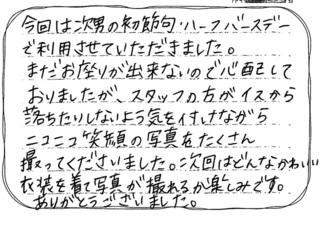 今回は次男の初節句・ハーフバースデー
で利用させていただきました。
まだお座りが出来ないので心配して
おりましたが、スタッフの方がイスから
落ちたりしないよう気を付けながら
ニコニコ笑顔の写真をたくさん
撮ってくださいました。次回はどんなかわいい
衣装を着て写真が撮れるか楽しみです。
ありがとうございました。